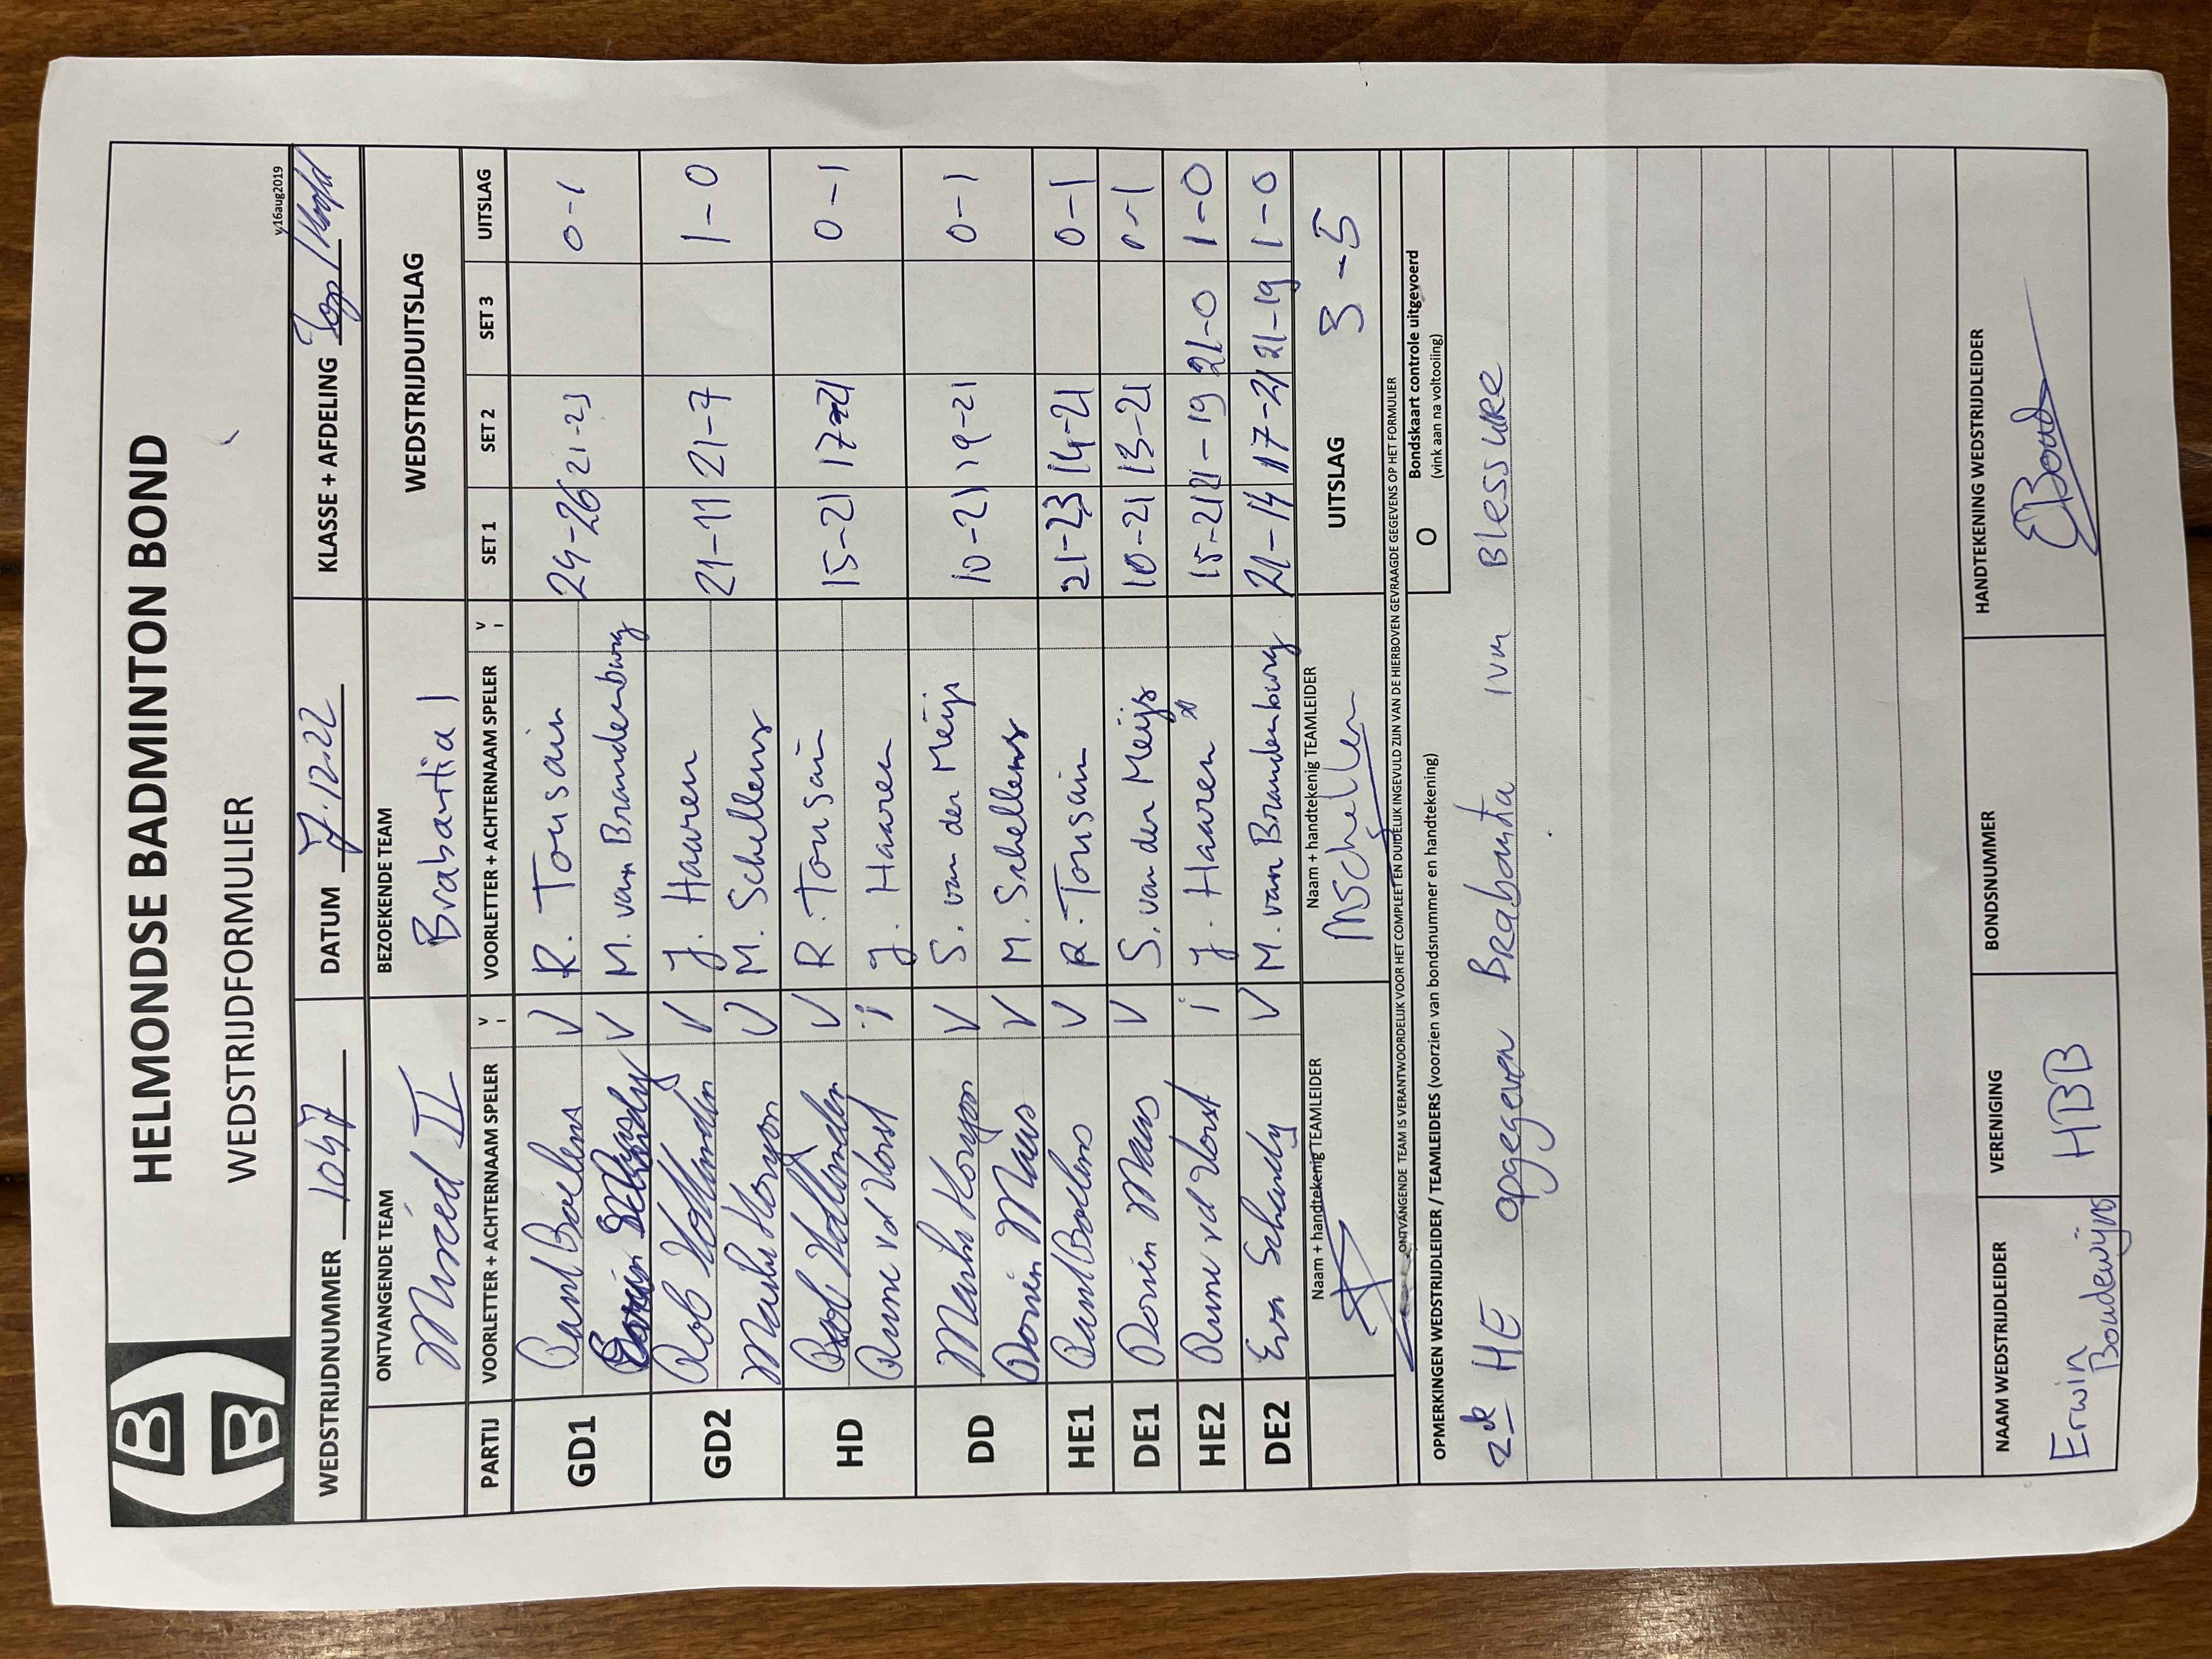 HELMONDSE BADMINTON BOND
WEDSTRIJDFORMULIER
v16aug2019
WEDSTRIJDNUMMER 1047 DATUM 7-12-22 KLASSE + AFDELING Top / Hoofd
ONTVANGENDE TEAM BEZOEKENDE TEAM WEDSTRIJDUITSLAG
Mixed II Brabantia 1
PARTIJ VOORLETTER + ACHTERNAAM SPELER V I VOORLETTER + ACHTERNAAM SPELER V I SET 1 SET 2 SET 3 UITSLAG
GD1 V R. Tousain 24-26 21-23 0-1
V M. van Brandenburg
GD2 Rob Hollander V J. Haaren 21-11 21-7 1-0
V M. Schellens
HD Rob Hollander V R. Tousain 15-21 17-21 0-1
Rune vd Vorst i J. Haaren
DD V S. van der Meijs 10-21 19-21 0-1
Dorien Maas V M. Schellens
HE1 V R. Tousain 21-23 14-21 0-1
DE1 Dorien Maas V S. van der Meijs 10-21 13-21 0-1
HE2 Rune vd Vorst i J. Haaren 15-21 21-19 21-0 1-0
DE2 V M. van Brandenburg 21-14 17-21 21-19 1-0
Naam + handtekenig TEAMLEIDER Naam + handtekenig TEAMLEIDER UITSLAG 3-5
MSchellen
ONTVANGENDE TEAM IS VERANTWOORDELIJK VOOR HET COMPLEET EN DUIDELIJK INGEVULD ZIJN VAN DE HIERBOVEN GEVRAAGDE GEGEVENS OP HET FORMULIER
OPMERKINGEN WEDSTRIJDLEIDER / TEAMLEIDERS (voorzien van bondsnummer en handtekening) O Bondskaart controle uitgevoerd
(vink aan na voltooiing)
2de HE opgegeven Brabantia ivm Blessure
NAAM WEDSTRIJDLEIDER VERENIGING BONDSNUMMER HANDTEKENING WEDSTRIJDLEIDER
Erwin HBB
Boudewijns